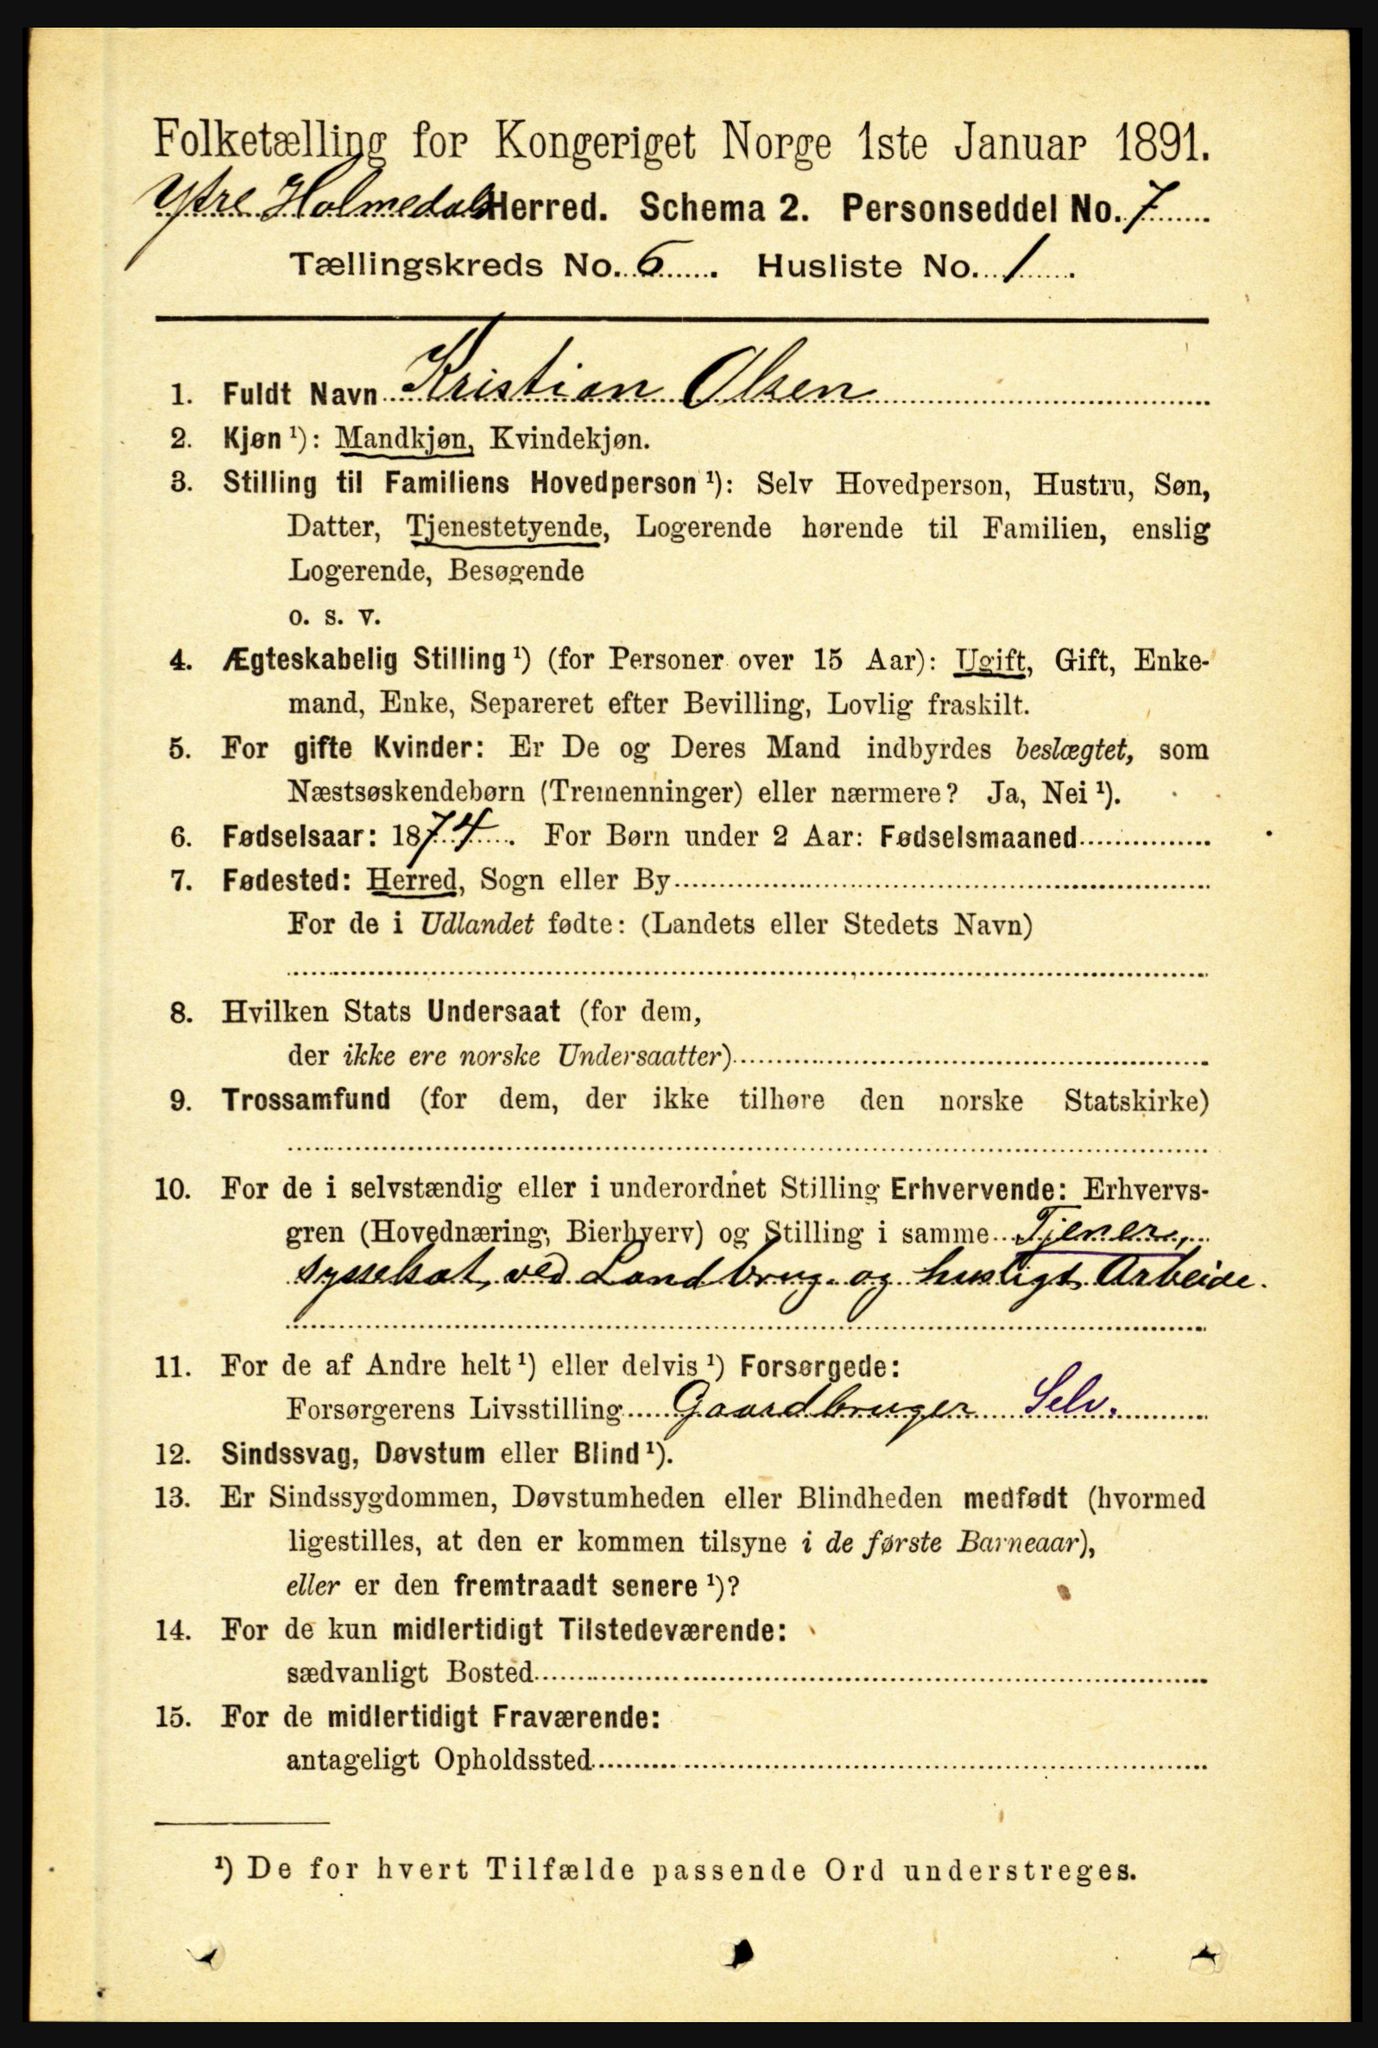 Folketælling for Kongeriget Norge 1ste Januar 1891.
Ytre Holmedals Herred. Schema 2. Personseddel No. 7
Tællingskreds No. 6. Husliste No. 1.
1. Fuldt Navn Kristian Olsen
2. Kjøn ¹): Mandkjøn, Kvindekjøn.
3. Stilling til Familiens Hovedperson ¹): Selv Hovedperson, Hustru, Søn,
Datter, Tjenestetyende, Logerende hørende til Familien, enslig
Logerende, Besøgende
o. s. v.
4. Ægteskabelig Stilling ¹) (for Personer over 15 Aar): Ugift, Gift, Enke-
mand, Enke, Separeret efter Bevilling, Lovlig fraskilt.
5. For gifte Kvinder: Er De og Deres Mand indbyrdes beslægtet, som
Næstsøskendebørn (Tremenninger) eller nærmere? Ja, Nei ¹).
6. Fødselsaar: 1874. For Børn under 2 Aar: Fødselsmaaned
7. Fødested: Herred, Sogn eller By
For de i Udlandet fødte: (Landets eller Stedets Navn)
8. Hvilken Stats Undersaat (for dem,
der ikke ere norske Undersaatter)
9. Trossamfund (for dem, der ikke tilhøre den norske Statskirke)
10. For de i selvstændig eller i underordnet Stilling Erhvervende: Erhvervs-
gren (Hovednæring, Bierhverv) og Stilling i samme Tjener,
sysselsat ved Landbrug og husligt Arbeide.
11. For de af Andre helt ¹) eller delvis ¹) Forsørgede:
Forsørgerens Livsstilling Gaardbruger Selv.
12. Sindssvag, Døvstum eller Blind ¹).
13. Er Sindssygdommen, Døvstumheden eller Blindheden medfødt (hvormed
ligestilles, at den er kommen tilsyne i de første Barneaar),
eller er den fremtraadt senere ¹)?
14. For de kun midlertidigt Tilstedeværende:
sædvanligt Bosted
15. For de midlertidigt Fraværende:
antageligt Opholdssted
¹) De for hvert Tilfælde passende Ord understreges.